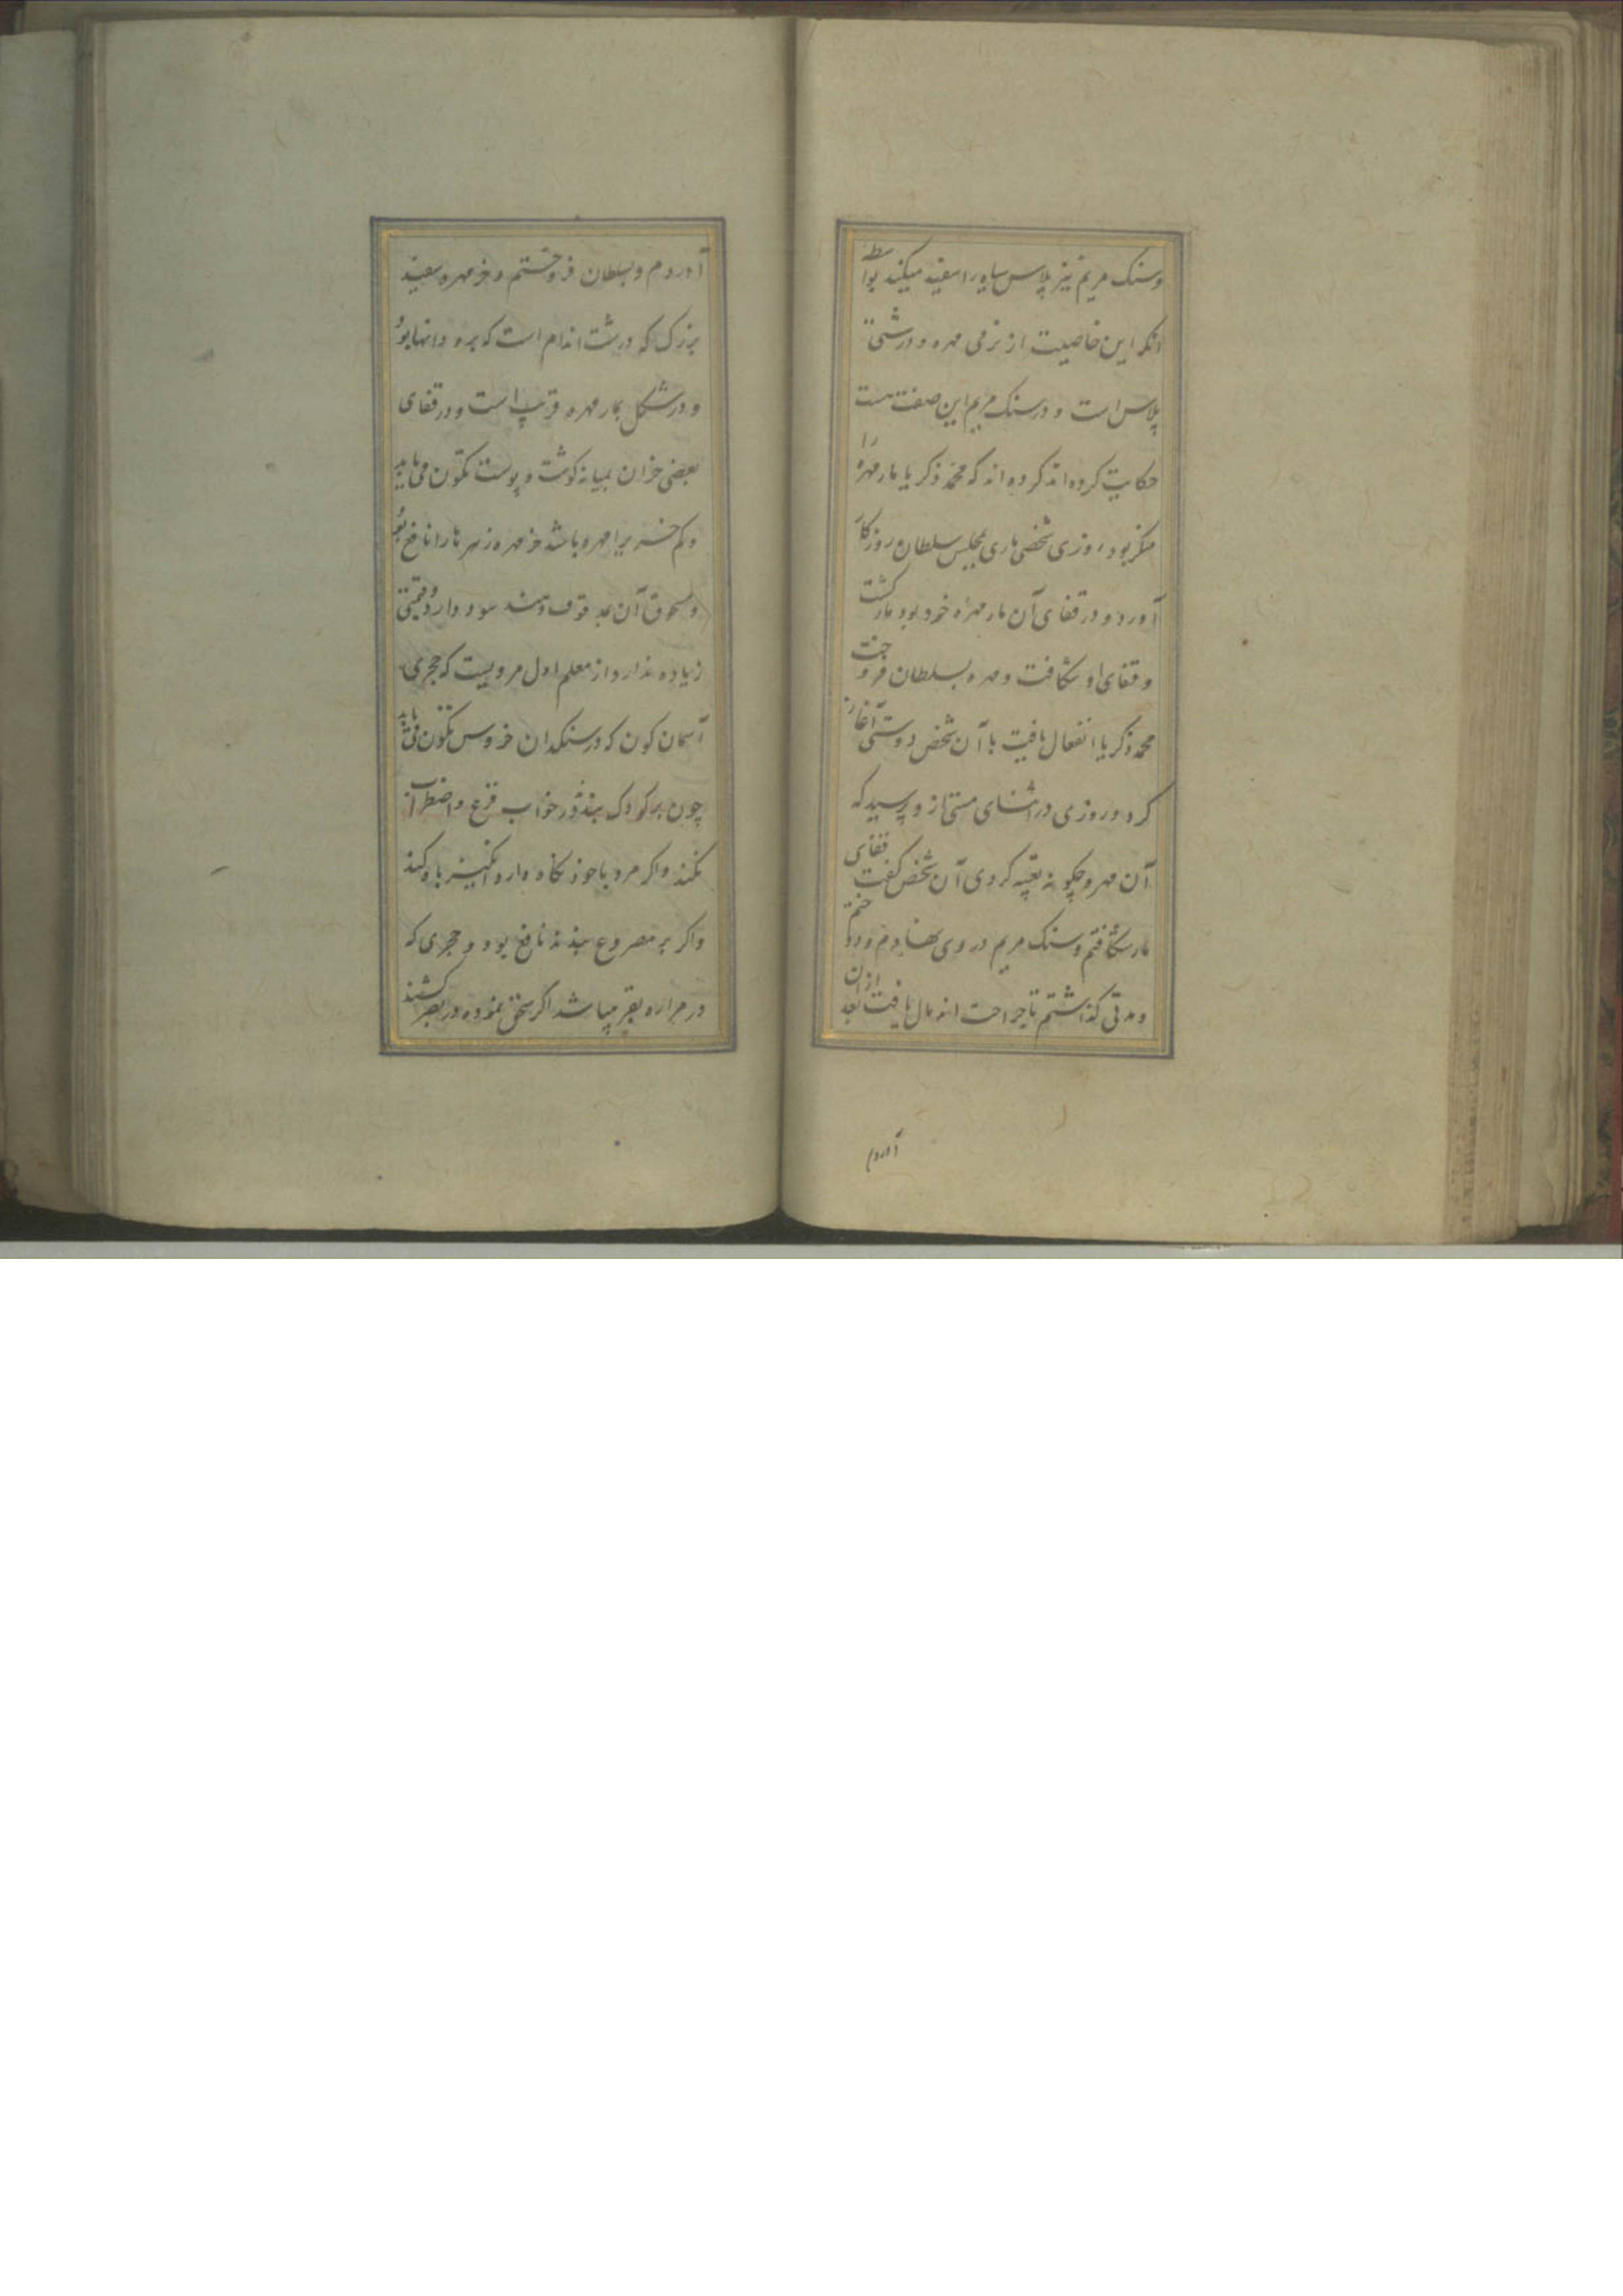 وسنک مریم نیز پلاس سیاه را سفید میکند بواسطه
انکه این خاصیت از نرمی مهره و درشتی
پلاس است و در سنک مریم این صفت هست
حکایت کرده اند کرده اند که محمد ذکریا مار مهره را
منکر بود روزی شخصی ماری بمجلس سلطان روزکار
آورد و در قفای آن مار مهره خرد بود مار کشت
و قفای او شکافت و مهره بسلطان فروخت
محمد ذکریا انفعال یافت با آن شخص دوستی آغاز
کرد و روزی در اثنای مستی از و پرسید که
آن مهره چکونه تعبیه کردی آن شخص کفت قفای
مار شکافتم و سنک مریم در وی نهادم و دوختم
و مدتی کذاشتم تا جراحت اندمال یافت بعد ازان
آوردم
آوردم و بسلطان فروختم و خر مهره سفید
بزرک که درشت اندام است که بر و دانها بود
و در شکل بمار مهره قریب است و در قفای
بعضی خران بمیانه کوشت و پوست تکون می یابد
و کم خری را مهره باشد خر مهره زهرها را نافع بود
و سحوق آن سود دارد و قیمتی
زیاده ندارد از معلم اول مرویست که حجری
آسمان کون که در سنکدان خروس تکون می یابد
چون بر کودک بندند در خواب فزع و اضطراب
نکند و اکر مرد با خود نکاه دارد انکیز باه کند
و اکر بر مصروع بندند نافع بود و حجری که
در مراره بقر میباشد اکر سحق نموده در بصر کشند